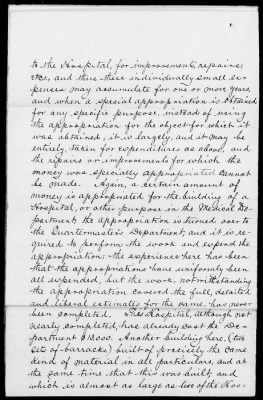 to the Hospital, for improvements, repairs,
etc, and thus these individually small ex-
penses may assumulate for one or more years,
and when a special appropriation is obtained
for any specific purpose, instead of using
the appropriation for the object for which it
was obtained, it is largely, and it may be
entirely, taken for expenditures as above, and
the repairs or improvements for which the
money was specially appropriated cannot
be made. Again, a certain amount of
money is appropriated for the building of a
Hospital, or other purpose in the Medical De-
partment; the appropriation is turned over to
the Quartermaster's Department; and it is re-
quired to perform the work and expend the
appropriation; the experience here has been
that the appropriations have uniformly been
all expended, but the work, notwithstanding
the appropriation covered the full, detailed
and liberal estimates for the same, has never
been completed. This Hospital, although not
nearly completed has already cost the De-
partment $12000. Another building here, (two
sets of barracks) built of precisely the same
kind of material in all particulars, and at
the same time that this was built, and
which is almost as large as two of the Hos-